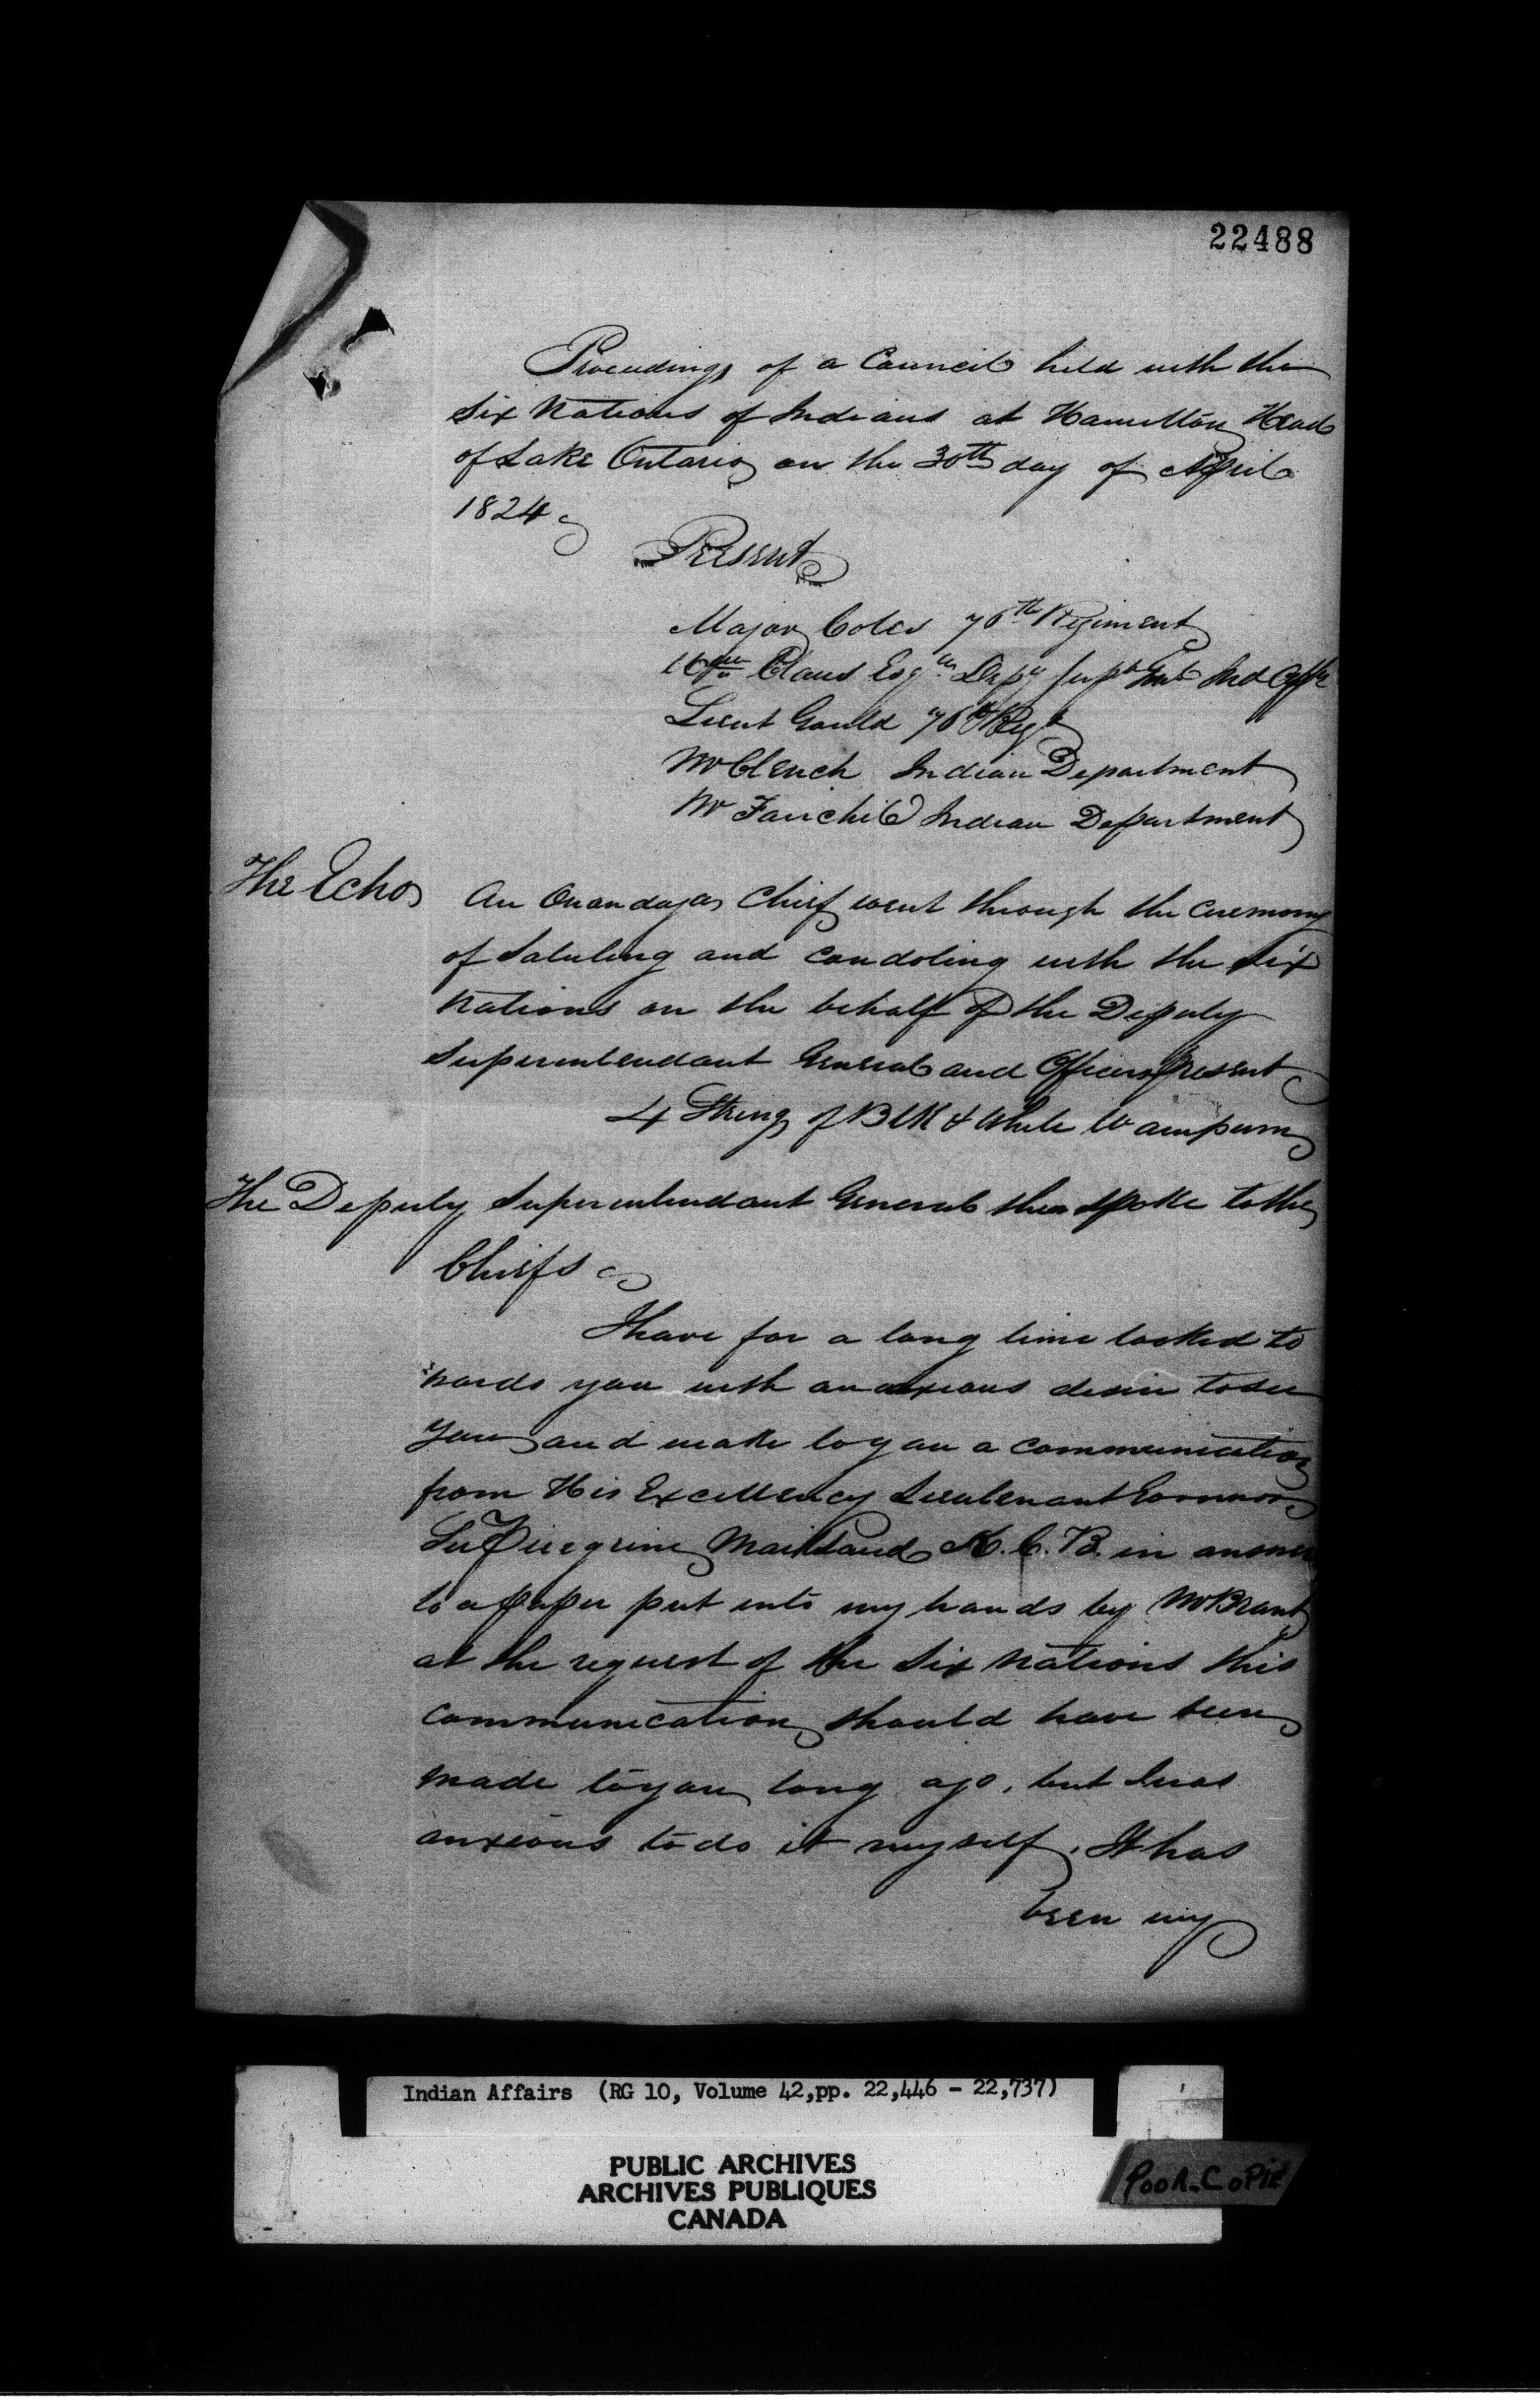 22488
Proceedings of a Council held with the
Six Nations of Indians at Hamilton Head
of Lake Ontario on the 30th day of April
1824
Present
Major Coles 76th Regiment
Wm Claus Esqre Depy Supt Genl Ind Affrs
Lieut Gould 76th Regt
Mr Clench Indian Department
Mr Fairchild Indian Department
The Echo An Onandaga Chief went through the Ceremony
of Saluting and Condoling with the Six
Nations on the behalf of the Deputy
Superintendant General and Officers present
4 Strings of Blk & White Wampum
The Deputy Superintendant General then spoke to the
Chiefs
I have for a long time looked to
wards you with an anxious desire to see
you and make to you a communication
from His Excellency Lieutenant Governor
Sir Peregrine Maitland K.C.B. in answer
to a paper put into my hands by Mr Brant
at the request of the Six Nations this
communication should have been
made to you long ago, but I was
anxious to do it myself. It has
been my
Indian Affairs (RG 10, Volume 42, pp. 22,446 - 22,737)
PUBLIC ARCHIVES
ARCHIVES PUBLIQUES
CANADA
POOR COPIE